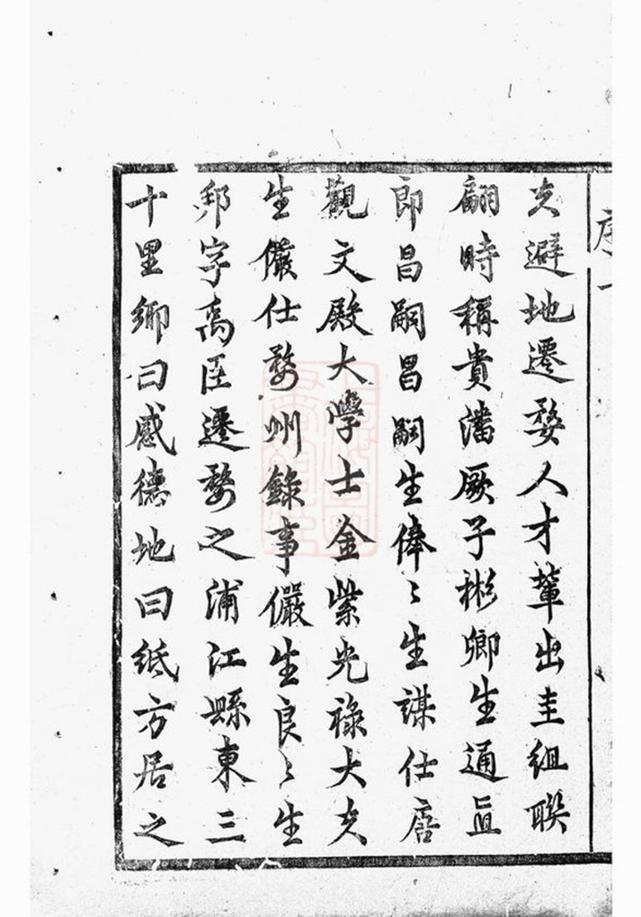 序一
夫避地遷婺人才輩出圭組聯
翩時稱貴潘厥子彬卿生通直
郎昌嗣昌嗣生俸〻生謀仕唐
觀文殿大學士金紫光祿大夫
生儼仕婺州錄事儼生良〻生
邦字禹臣遷婺之浦江縣東三
十里鄉曰感德地曰紙方居之